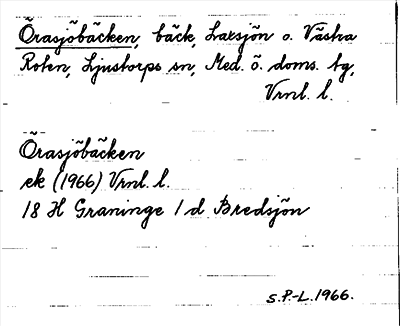 Örasjöbäcken, bäck, Laxsjön o. Västra
Roten, Ljustorps sn, Med. ö. doms. tg,
Vrnl. l.
Örasjöbäcken
ek (1966) Vrnl. l.
18 H Graninge 1 d Bredsjön
s.P.-L.1966.